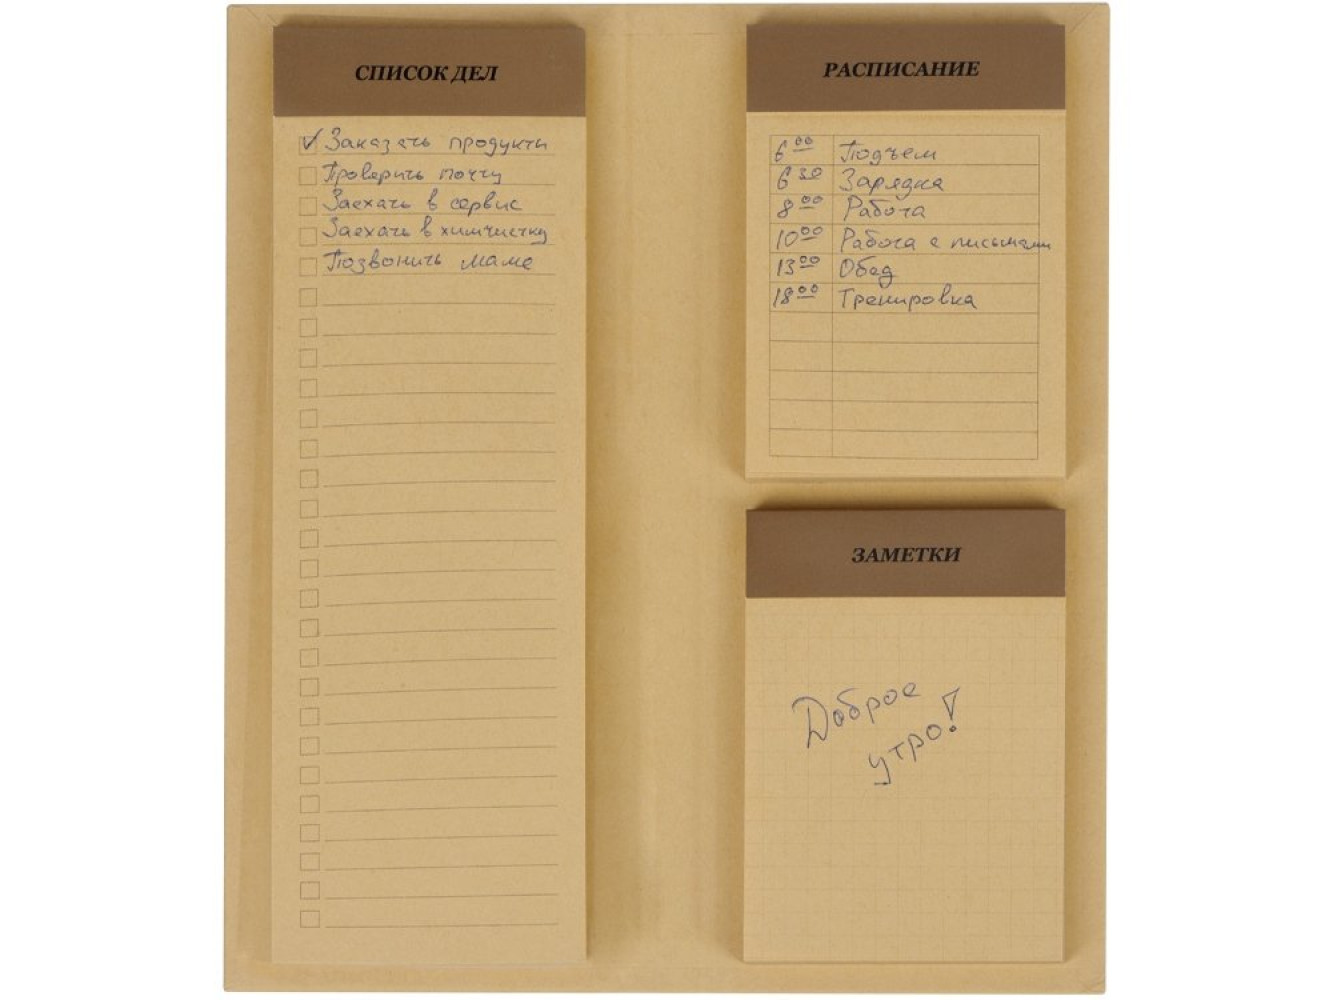 СПИСОК ДЕЛ
Заказать продукты
Проверить почту
Заехать в сервис
Заехать в химчистку
Позвонить маме
РАСПИСАНИЕ
6 00 Подъем
6 30 Зарядка
8 00 Работа
10 00 Работа с письмами
13 00 Обед
18 00 Тренировка
ЗАМЕТКИ
Доброе
утро!